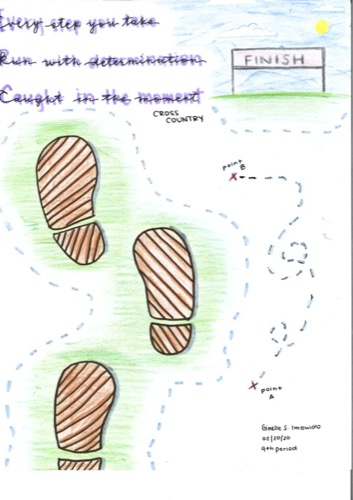 Every step you take
Run with determination
Caught in the moment
FINISH
CROSS
COUNTRY
point
B
point
A
Giselle S. Imbuido
05/20/20
9th period